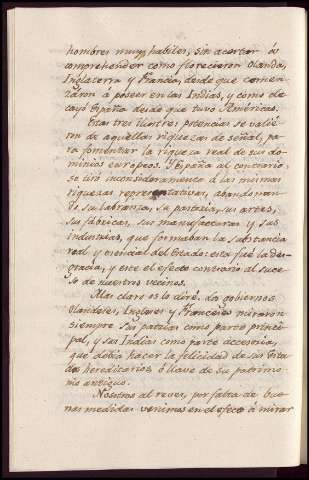 hombres muy habiles, sin acertar á
comprehender como florecieron Olanda,
Inglaterra y Francia, desde que comen-
zaron á poseer en las Indias, y como de-
cayó España desde que tuvo Américas.
Estas tres ilustres potencias se valie-
ron de aquellas riquezas de señal, pa-
ra fomentar la riqueza real de sus do-
minios europeos. Y España al contrario,
se tiró inconsideramente á las mismas
riquezas representativas, abandonan-
do su labranza, su, sus artes,
sus fábricas, sus manufacturas y sus
industrias, que formaban la substancia
real y esencial del Estado: esta fué la des-
gracia, y este el efecto contrario al suce-
so de nuestros vecinos.
Mas claro es lo diré. Los gobiernos
Olandeses, Ingleses y Franceses miraron
siempre sus patrias como parte princi-
pal, y sus Indias como parte accesoria,
que debia hacer la felicidad de sus Esta-
dos hereditarios ó llave de su patrimo-
nio antiguo.
Nosotros al reves, por falta de bue-
nas medidas venimos en el efecto á mirar